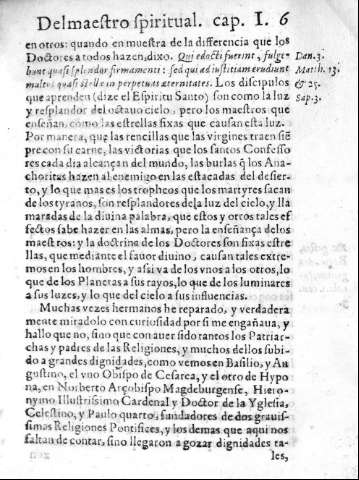 Del maestro spiritual. cap. I. 6
en otros: quando en muestra de la differencia que los
Doctores a todos hazen, dixo. Qui edocti fuerint, fulge-
bunt quasi splendor firmamenti: sed qui ad iustitiam erudiunt
multos quasi stellæ in perpetuas æternitates. Los discipulos
que aprenden (dize el Espiritu Santo) son como la luz
y resplandor del octauo cielo, pero los maestros que
enseñan, como las estrellas fixas que causan esta luz.
Por manera, que las rencillas que las virgines traen siẽ
pre con su carne, las victorias que los santos Confesso
res cada dia alcançan del mundo, las burlas q̃ los Ana-
choritas hazen al enemigo en las estacadas del desier-
to, y lo que mas es los tropheos que los martyres sacan
de los tyranos, son resplandores de la luz del cielo, y lla
maradas de la diuina palabra, que estos y otros tales ef
fectos sabe hazer en las almas, pero la enseñança de los
maestros: y la doctrina de los Doctores son fixas estre
llas, que mediante el fauor diuino, causan tales extre-
mos en los hombres, y assi va de los vnos a los otros, lo
que de los Planetas a sus rayos, lo que de los luminares
a sus luzes, y lo que del cielo a sus influencias.
Muchas vezes hermanos he reparado, y verdadera
mente miradolo con curiosidad por si me engañaua, y
hallo que no, sino que con auer sido tantos los Patriar-
chas y padres de las Religiones, y muchos dellos subi-
do a grandes dignidades, como vemos en Basilio, y Au
gustino, el vno Obispo de Cesarea, y el otro de Hypo
na, en Norberto Arçobispo Magdeburgense, Hiero-
nymo Illustrissimo Cardenal y Doctor de la Yglesia,
Celestino, y Paulo quarto, fundadores de dos grauis-
simas Religiones Pontifices, y los demas que aqui nos
faltan de contar, sino llegaron a gozar dignidades ta-
les,
Dan. 3.
Matth. 13.
& 25.
Sap. 3.